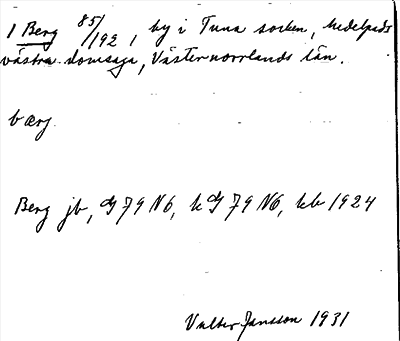 1 Berg 85/192, by i Tuna socken, Medelpads
västra domsaga, Västernorrlands län.
bærj
Berg jb, G 79 N6, k G 79 N6, kb 1924
Valter Jansson 1931